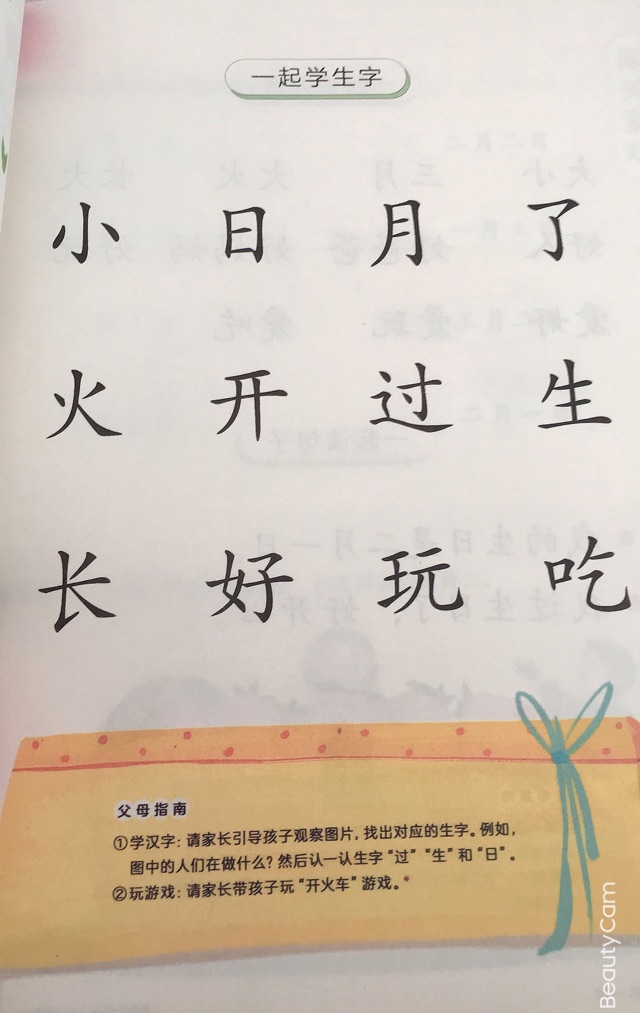 一起学生字
小 日 月 了
火 开 过 生
长 好 玩 吃
父母指南
①学汉字：请家长引导孩子观察图片，找出对应的生字。例如，
图中的人们在做什么？然后认一认生字“过”“生”和“日”。
②玩游戏：请家长带孩子玩“开火车”游戏。*
BeautyCam